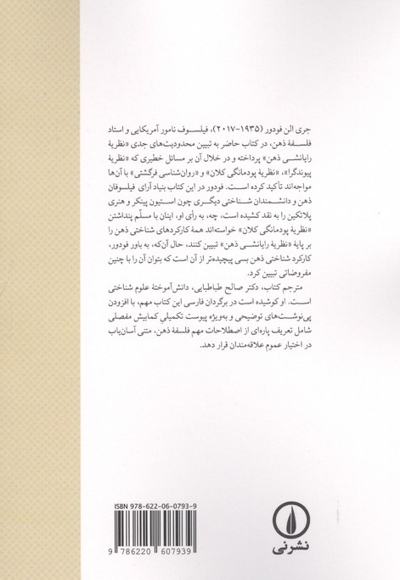 جری الن فودور (۱۹۳۵-۲۰۱۷)، فیلسوف نامور آمریکایی و استاد
فلسفهٔ ذهن، در کتاب حاضر به تبیین محدودیت‌های جدی «نظریهٔ
رایانشی ذهن» پرداخته و در خلال آن بر مسائل خطیری که «نظریهٔ
پیوندگرا»، «نظریهٔ پودمانگی کلان» و «روان‌شناسی فرگشتی» با آن‌ها
مواجه‌اند تأکید کرده است. فودور در این کتاب بنیاد آرای فیلسوفان
ذهن و دانشمندان شناختی دیگری چون استیون پینکر و هنری
پلاتکین را به نقد کشیده است، چه، به رأی او، اینان با مسلّم پنداشتن
«نظریهٔ پودمانگی کلان» خواسته‌اند همهٔ کارکردهای شناختی ذهن را
بر پایهٔ «نظریهٔ رایانشی ذهن» تبیین کنند، حال آن‌که، به باور فودور،
کارکرد شناختی ذهن بسی پیچیده‌تر از آن است که بتوان آن را با چنین
مفروضاتی تبیین کرد.
مترجم کتاب، دکتر صالح طباطبایی، دانش‌آموختهٔ علوم شناختی
است. او کوشیده است در برگردان فارسی این کتاب مهم، با افزودن
پی‌نوشت‌های توضیحی و به‌ویژه پیوست تکمیلی کمابیش مفصلی
شامل تعریف پاره‌ای از اصطلاحات مهم فلسفهٔ ذهن، متنی آسان‌یاب
در اختیار عموم علاقه‌مندان قرار دهد.
ISBN 978-622-06-0793-9
9 786220 607939
نشرنی